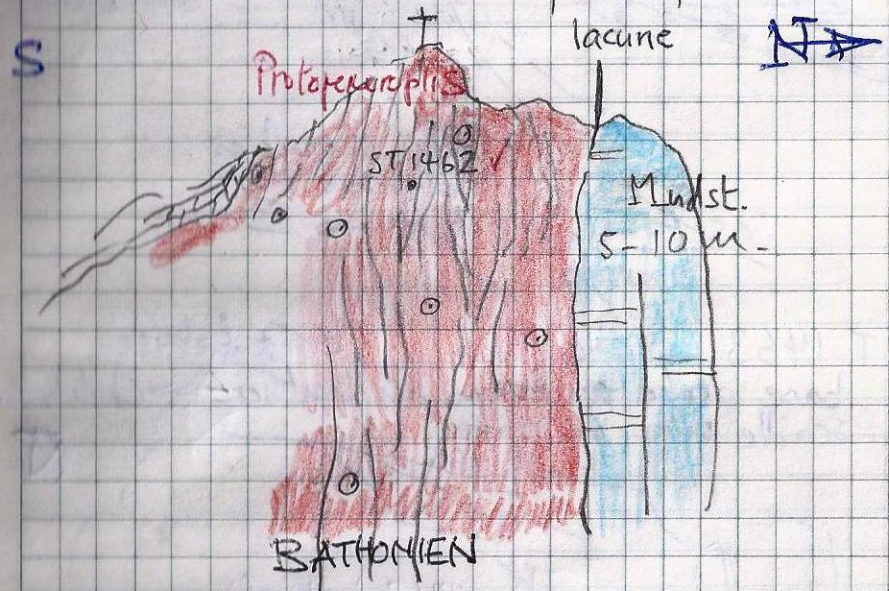 lacune
S
N
Protopeneroplis
ST 1462
Mudst.
5-10 m.
BATHONIEN